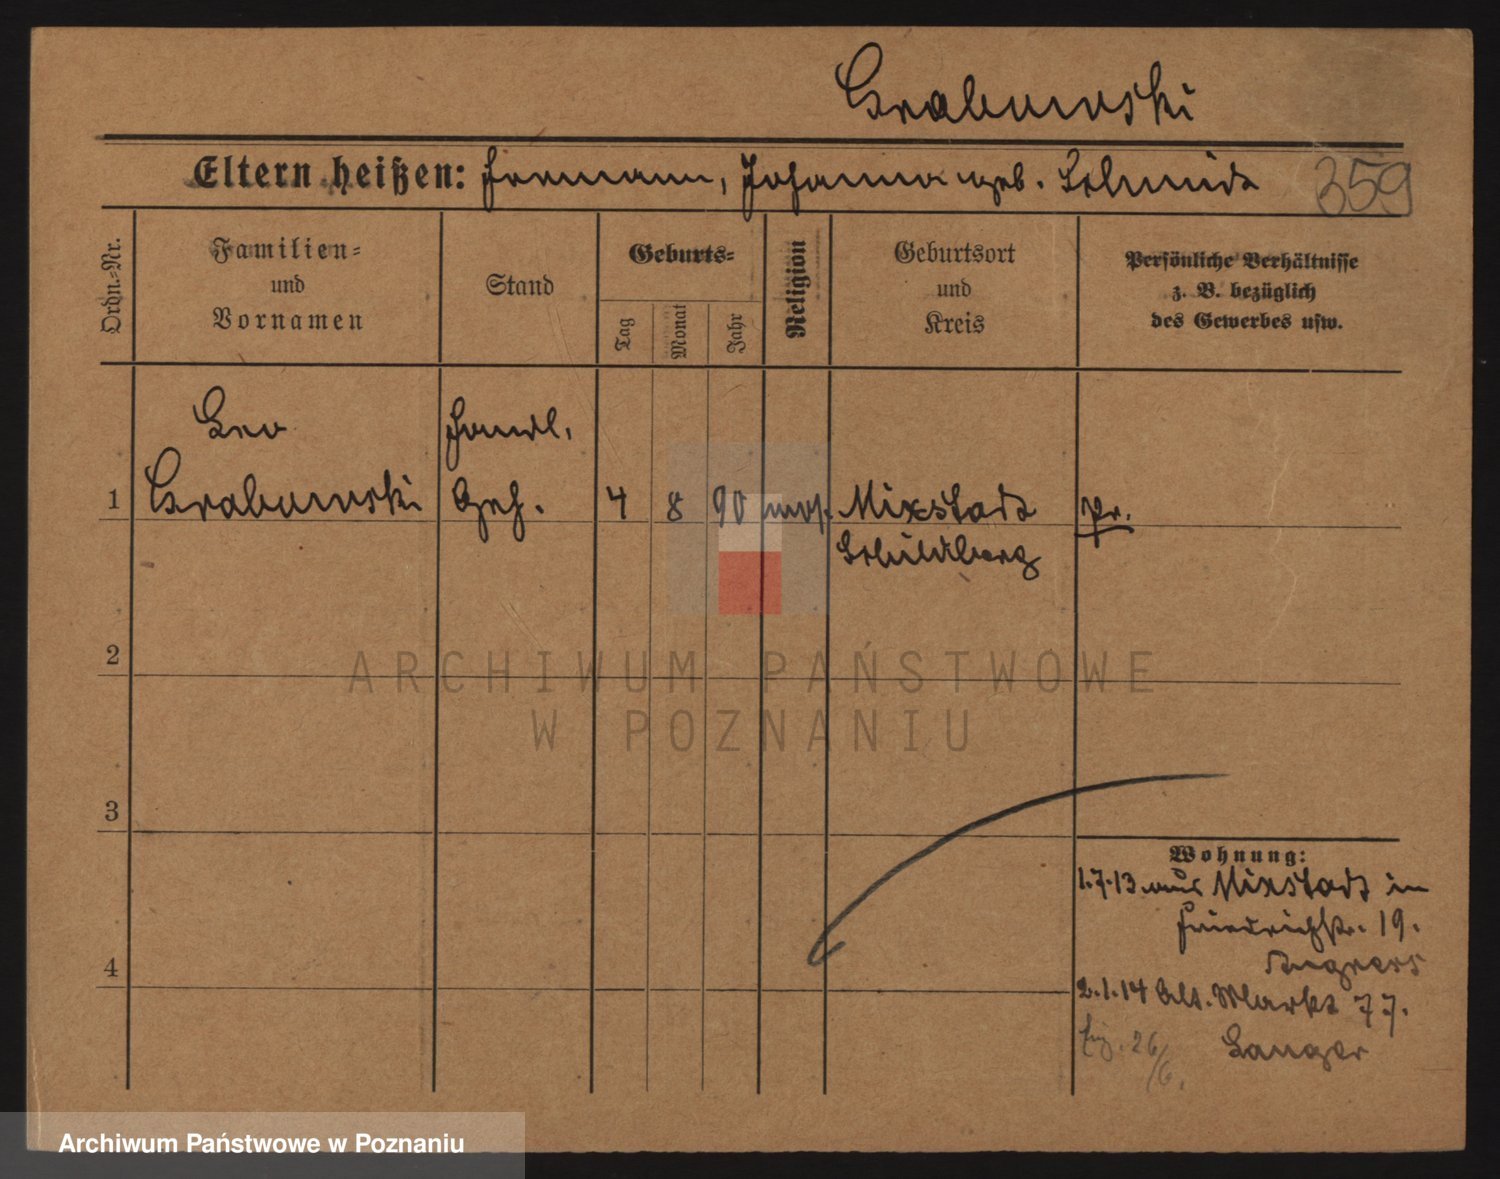 Grabowski
Eltern heißen: Hermann, Johanna geb. Schmidt
359
Ordn.-Nr.
Familien-
und
Vornamen
Stand
Geburts-
Tag
Monat
Jahr
Religion
Geburtsort
und
Kreis
Persönliche Verhältnisse
z. B. bezüglich
des Gewerbes usw.
Leo
Handl.
1 Grabowski Geh. 4 8 90 mos. Mixstadt Pr.
Schildberg
2
ARCHIWUM PAŃSTWOWE
W POZNANIU
3
Wohnung:
1.7.13 aus Mixstadt in
Friedrichstr. 19.
4
2.1.14 Alt. Markt 77.
26/6. Langer
Archiwum Państwowe w Poznaniu